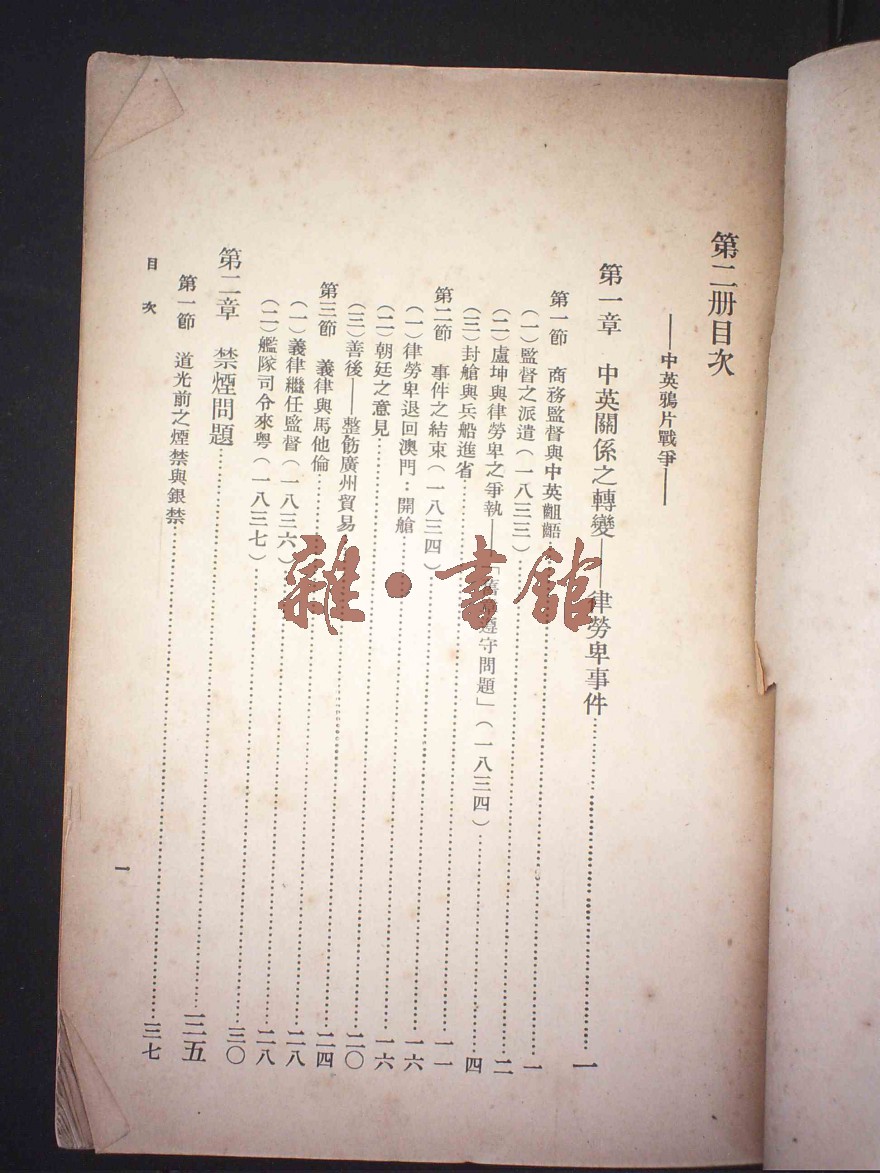 第二册目次
——中英鴉片戰爭——
第一章 中英關係之轉變——律勞卑事件……一
第一節 商務監督與中英齟齬……一
(一)監督之派遣(一八三三)……二
(二)盧坤與律勞卑之爭執——「遵守問題」(一八三四)……四
(三)封艙與兵船進省……一一
第二節 事件之結束(一八三四)……一六
(一)律勞卑退回澳門:開艙……一六
(二)朝廷之意見……二〇
(三)善後——整飭廣州貿易……二四
第三節 義律與馬他倫……二八
(一)義律繼任監督(一八三六)……二八
(二)艦隊司令來粵(一八三七)……三〇
第二章 禁煙問題……三五
第一節 道光前之煙禁與銀禁……三七
目次
一
雜·書館